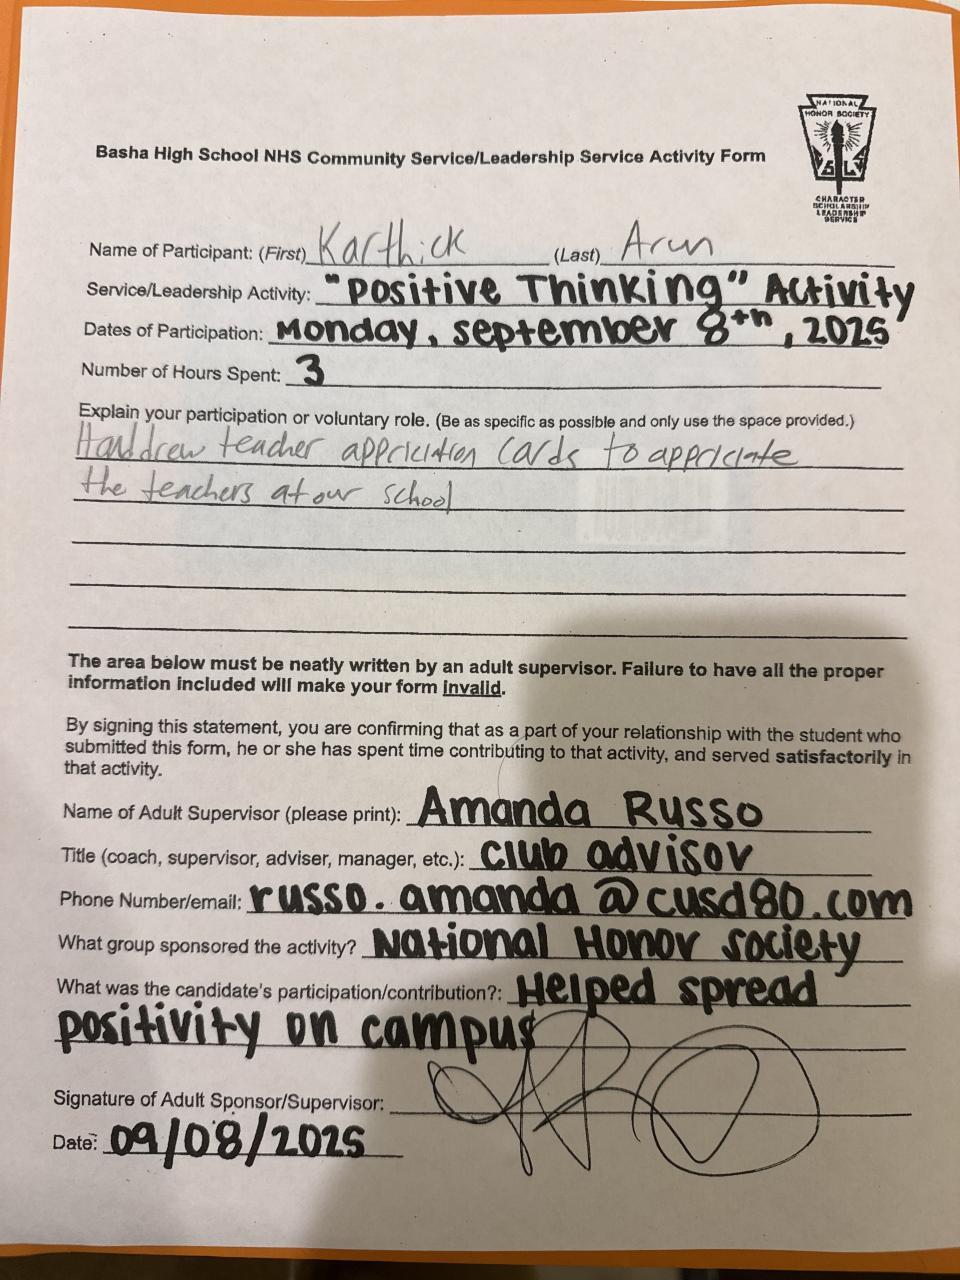 NATIONAL
HONOR SOCIETY
CHARACTER
SCHOLARSHIP
LEADERSHIP
SERVICE
Basha High School NHS Community Service/Leadership Service Activity Form
Name of Participant: (First) Karthick (Last) Arun
Service/Leadership Activity: "Positive Thinking" Activity
Dates of Participation: Monday, September 8th, 2025
Number of Hours Spent: 3
Explain your participation or voluntary role. (Be as specific as possible and only use the space provided.)
Handdrew teacher appriciation cards to appriciate
the teachers at our school
The area below must be neatly written by an adult supervisor. Failure to have all the proper
information included will make your form invalid.
By signing this statement, you are confirming that as a part of your relationship with the student who
submitted this form, he or she has spent time contributing to that activity, and served satisfactorily in
that activity.
Name of Adult Supervisor (please print): Amanda Russo
Title (coach, supervisor, adviser, manager, etc.): club advisor
Phone Number/email: russo.amanda@cusd80.com
What group sponsored the activity? National Honor Society
What was the candidate's participation/contribution?: Helped spread
positivity on campus
Signature of Adult Sponsor/Supervisor:
Date: 09/08/2025